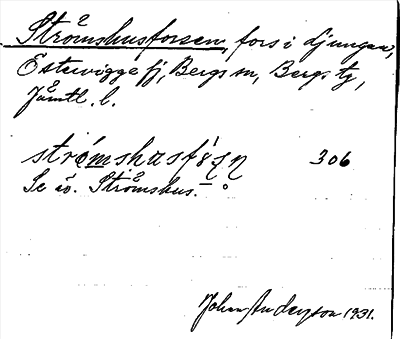 Strömshusforsen, fors i Ljungan,
Östervigge fj, Bergs sn, Bergs tg,
Jämtl. l.
strómshusfórsn 306
Se äv. Strömshus.
Johan Anderson 1931.